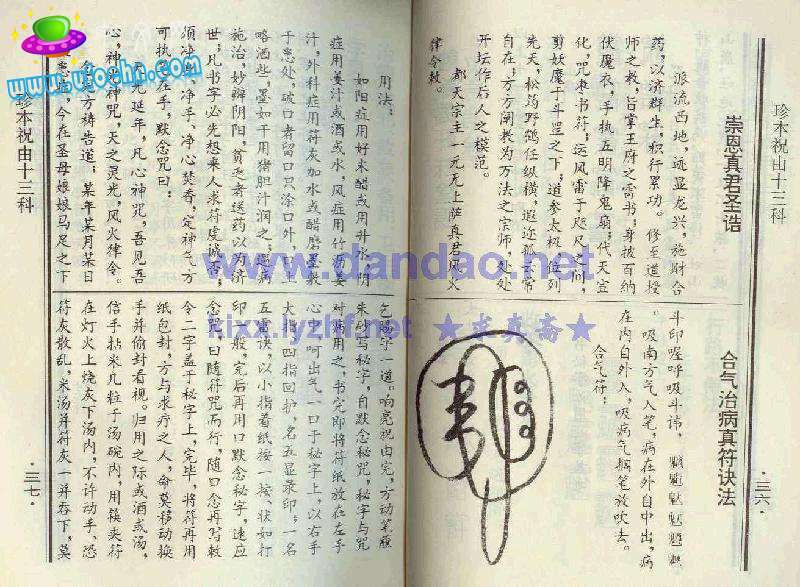 珍本祝由十三科
崇恩真君圣诰
派流西地，迹显龙兴，施财合
药，以济群生，积行累功。修至道授
师之教，旨掌王府之雷书；身披百纳
伏魔衣，手执五明降鬼扇；代天宣
化，咒枣书符；运风雷于咫尺之间，
剪妖魔于斗罡之下；道参太极，位列
先天，松筠野鹤任纵横，遐迩孤云常
自在；方万阐教为万法之宗师，处处
开坛作后人之模范。
都天宗主一元无上萨真君风火
律令敕。
合气治病真符诀法
斗印喔呼吸斗讳，
。吸南方气入笔，病在外自中出，病
在内自外入，吸病气搁笔放吹去。
合气符：
·三六·
用法：
如阳症用好米醋或用井水，阴
症用姜汁或酒或水，风症用竹沥姜
汁，外科症用符灰加水或醋磨墨敷
于患处，破口者留口只涂口外，口上
略洒些，墨如干用猪胆汁润之；遇病
施治，妙辨阴阳，贫乏者送药以为济
世；凡书字必先想来人求符虔诚否；
须净身、净手、净心焚香，定神气，方
可执笔在手，默念咒曰：
灵光延年，凡心神咒，吾见吾
心，神光神咒，天之灵光，风火律令。
念毕方祷告道：某年某月某日
患病，今在圣母娘娘马足之下
乞赐字一道。响亮祝由完，方动笔蘸
朱砂写秘字，自默念秘咒，秘字与咒
对病用之，书完即将符纸放在左手
心中，呵出气一口于秘字上，以右手
大指，四指回护，名五显灵印；一名
五雷诀，以小指着纸按一按，状如打
印一般，完后再用口默念秘字，速应
念咒一口随符咒而行，随口念再写敕
令二字盖于秘字上，完毕，将符再用
纸包封，方与求疗之人，命莫移动换
手并偷封看视。归用之际或酒或汤，
信手拈米几粒于汤碗内，用筷夹符
在灯火上烧灰下汤内，不许动手，恐
符灰散乱，米汤并符灰一并吞下，莫
·三七·
珍本祝由十三科
www.wochn.com
www.dandao.net
kixx.lyzhf.net ★求真斋★